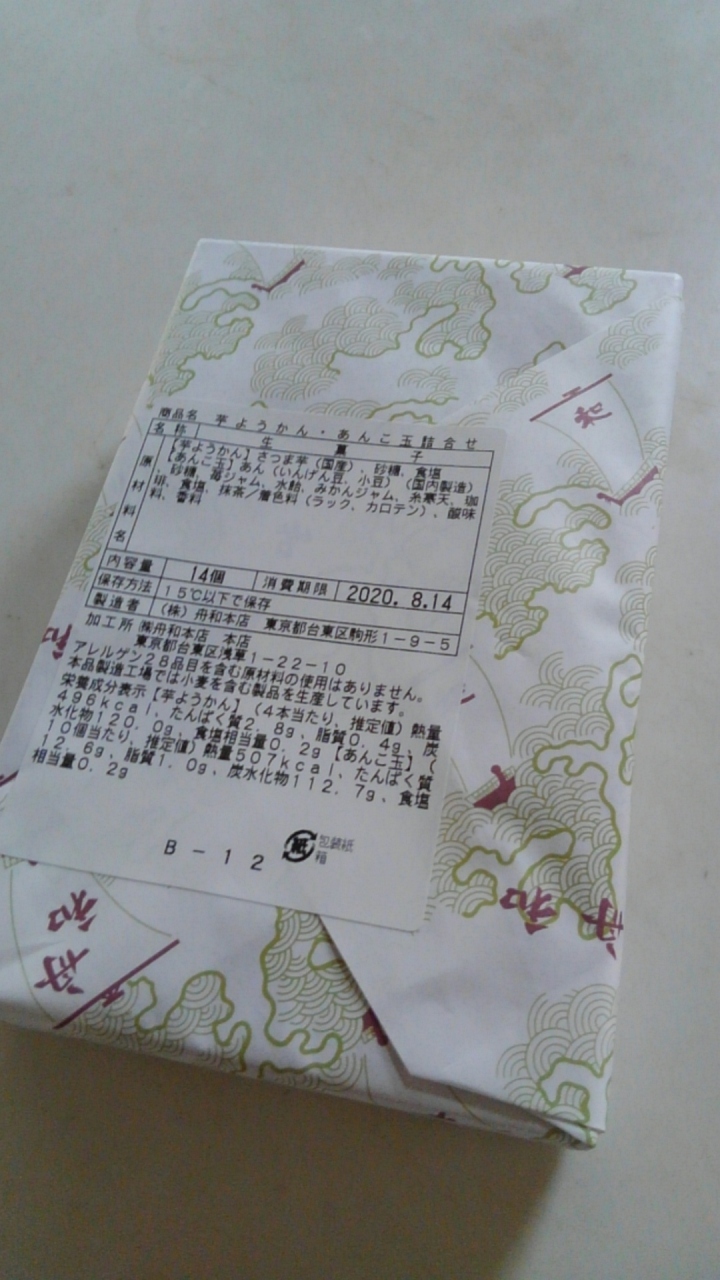 商品名 芋ようかん・あんこ玉詰合せ
名称 生菓子
原材料名
【芋ようかん】さつま芋（国産）、砂糖、食塩
【あんこ玉】あん（いんげん豆、小豆）（国内製造）
、砂糖、苺ジャム、水飴、みかんジャム、糸寒天、珈
琲、食塩、抹茶／着色料（ラック、カロテン）、酸味
料、香料
内容量 14個 消費期限 2020. 8.14
保存方法 15℃以下で保存
製造者 （株）舟和本店 東京都台東区駒形1－9－5
加工所 ㈱舟和本店 本店
東京都台東区浅草1－22－10
アレルゲン28品目を含む原材料の使用はありません。
本品製造工場では小麦を含む製品を生産しています。
栄養成分表示【芋ようかん】（4本当たり、推定値）熱量
496kcal、たんぱく質2．8g、脂質0．4g、炭
水化物120．0g、食塩相当量0．2g【あんこ玉】（
10個当たり、推定値）熱量507kcal、たんぱく質
12．6g、脂質1．0g、炭水化物112．7g、食塩
相当量0．2g
B－12
紙 包装紙
箱
舟和
舟和
和